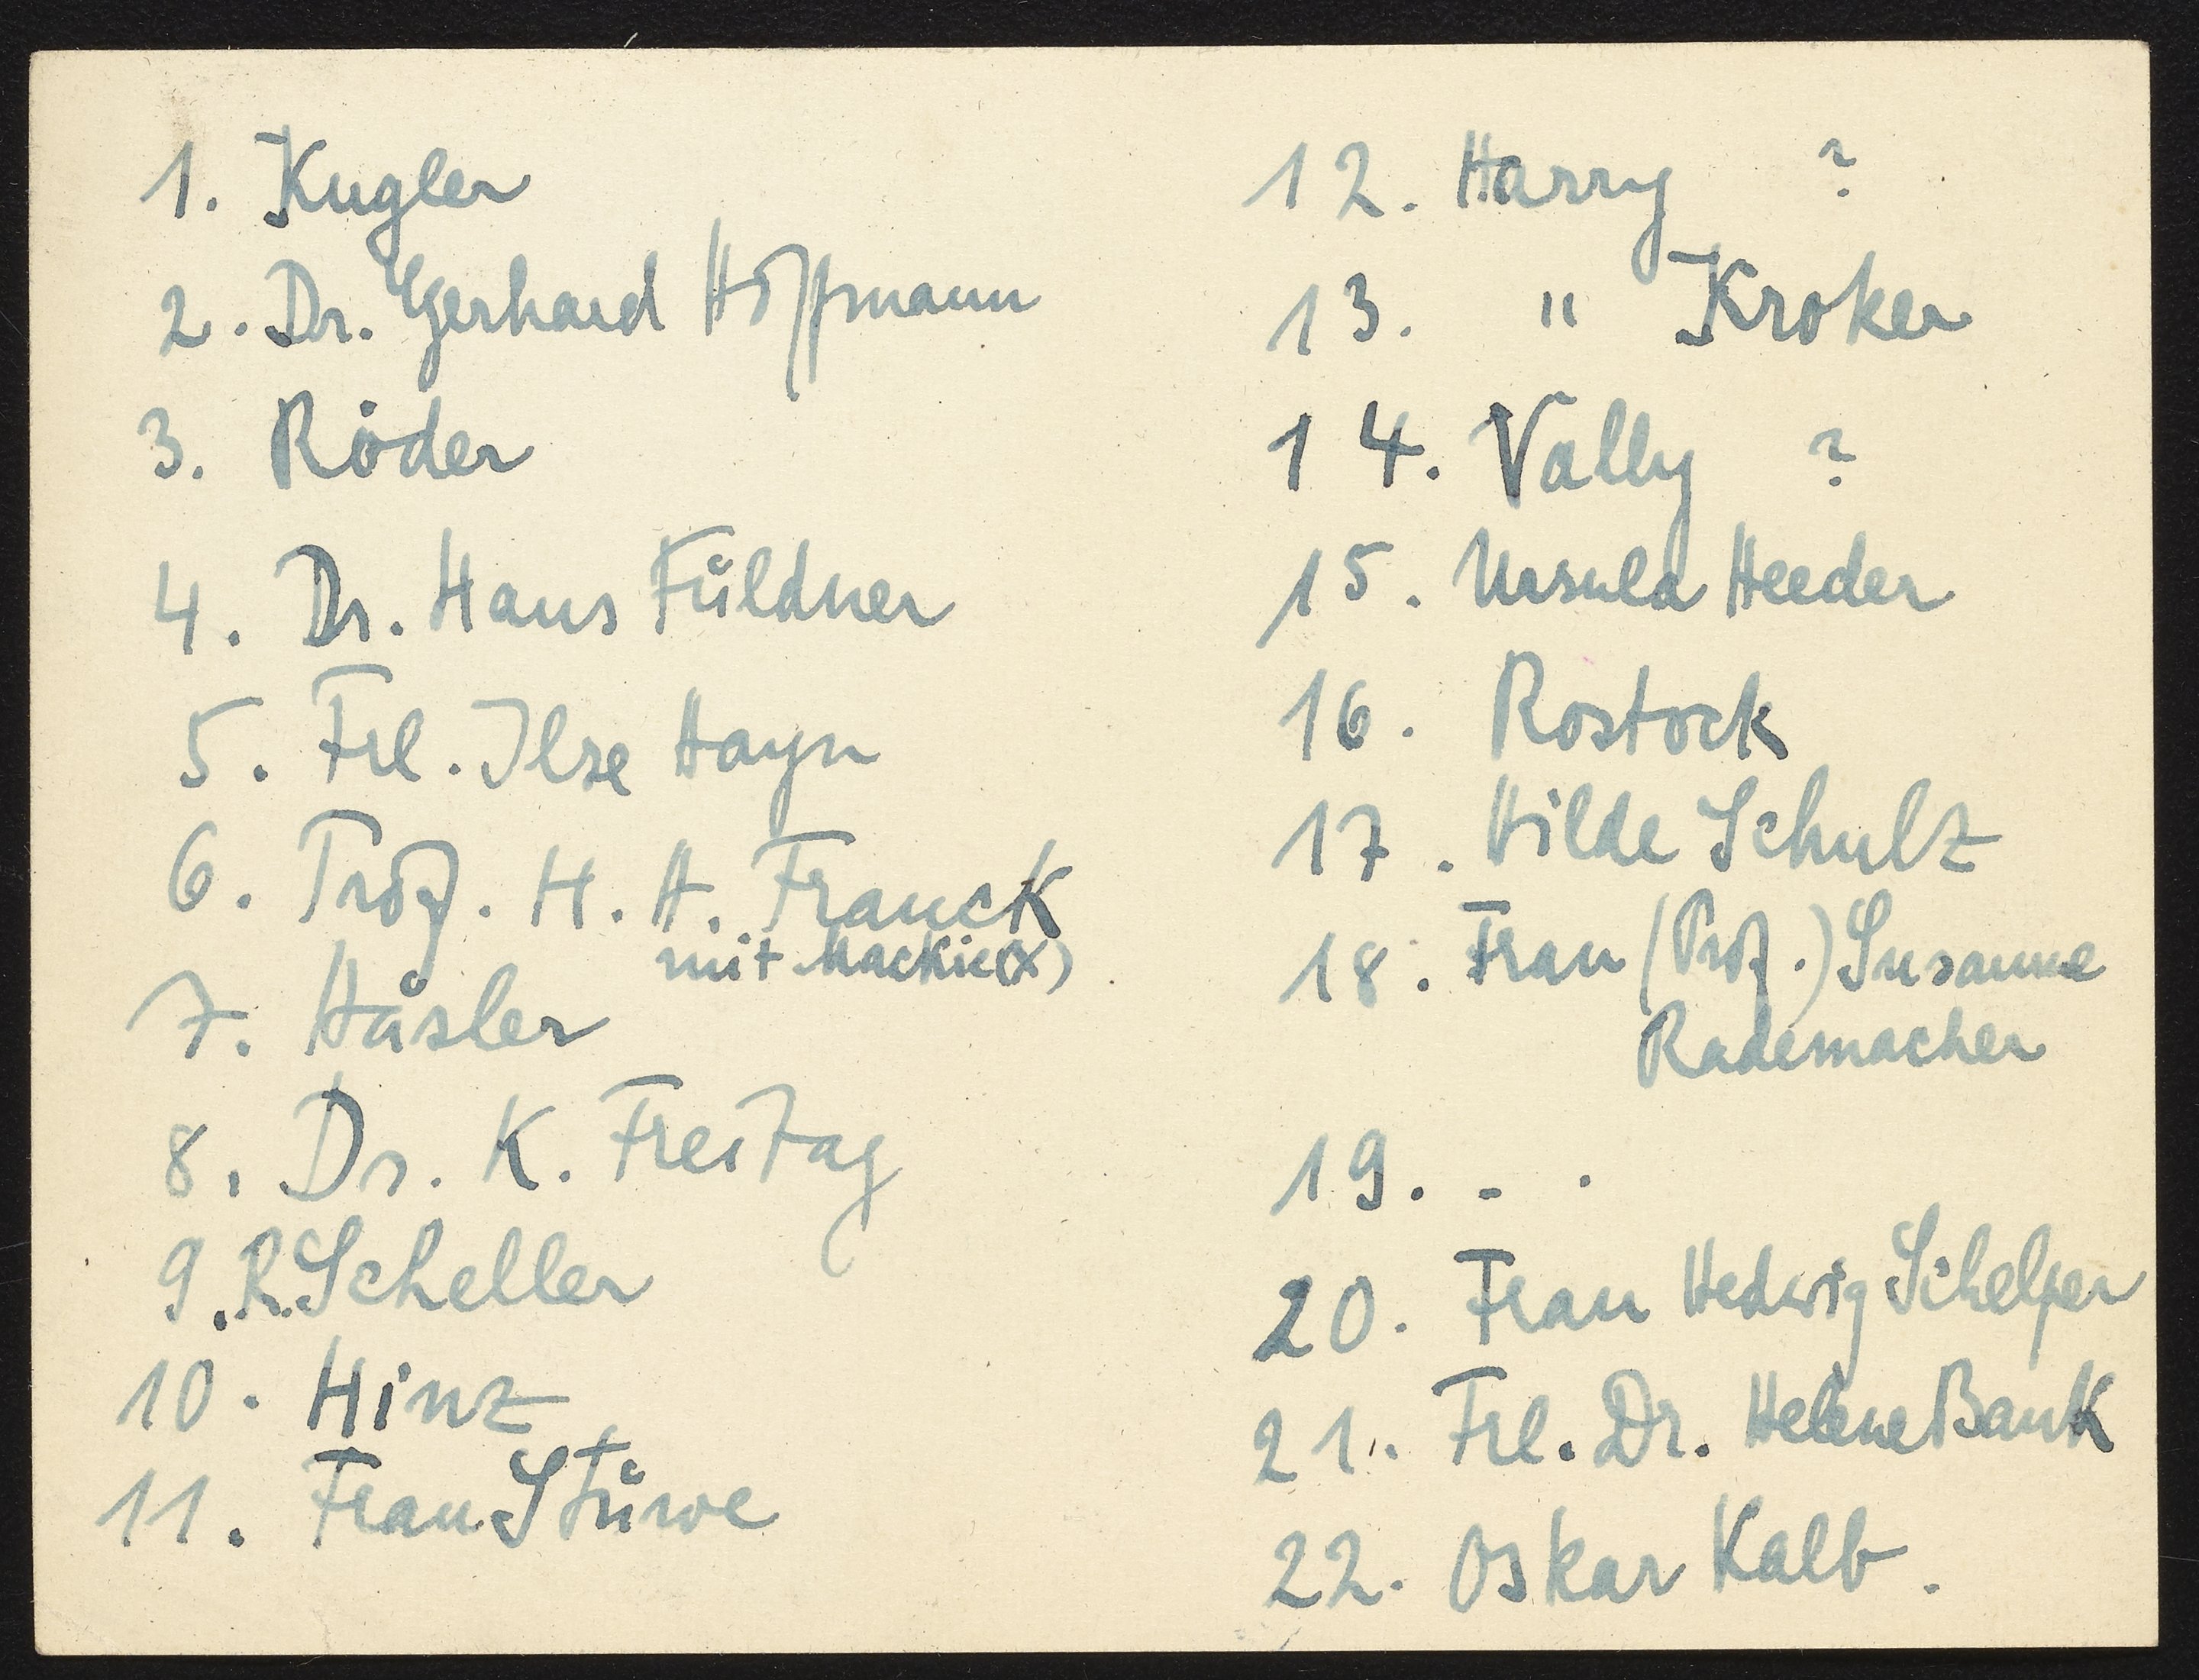 1. Kugler
2. Dr. Gerhard Hoffmann
3. Röder
4. Dr. Hans Füldner
5. Frl. Ilse Hayn
6. Prof. H. H. Franck
mit Mackie (x)
7. Häsler
8. Dr. K. Freitag
9. R. Scheller
10. Hinz
11. Frau Stüwe
12. Harry ?
13. " Kroker
14. Vally ?
15. Ursula Heeder
16. Rostock
17. Hilde Schulz
18. Frau (Prof.) Susanne
Rademacher
19. - .
20. Frau Hedwig Schelper
21. Frl. Dr. Helene Bank
22. Oskar Kalb.